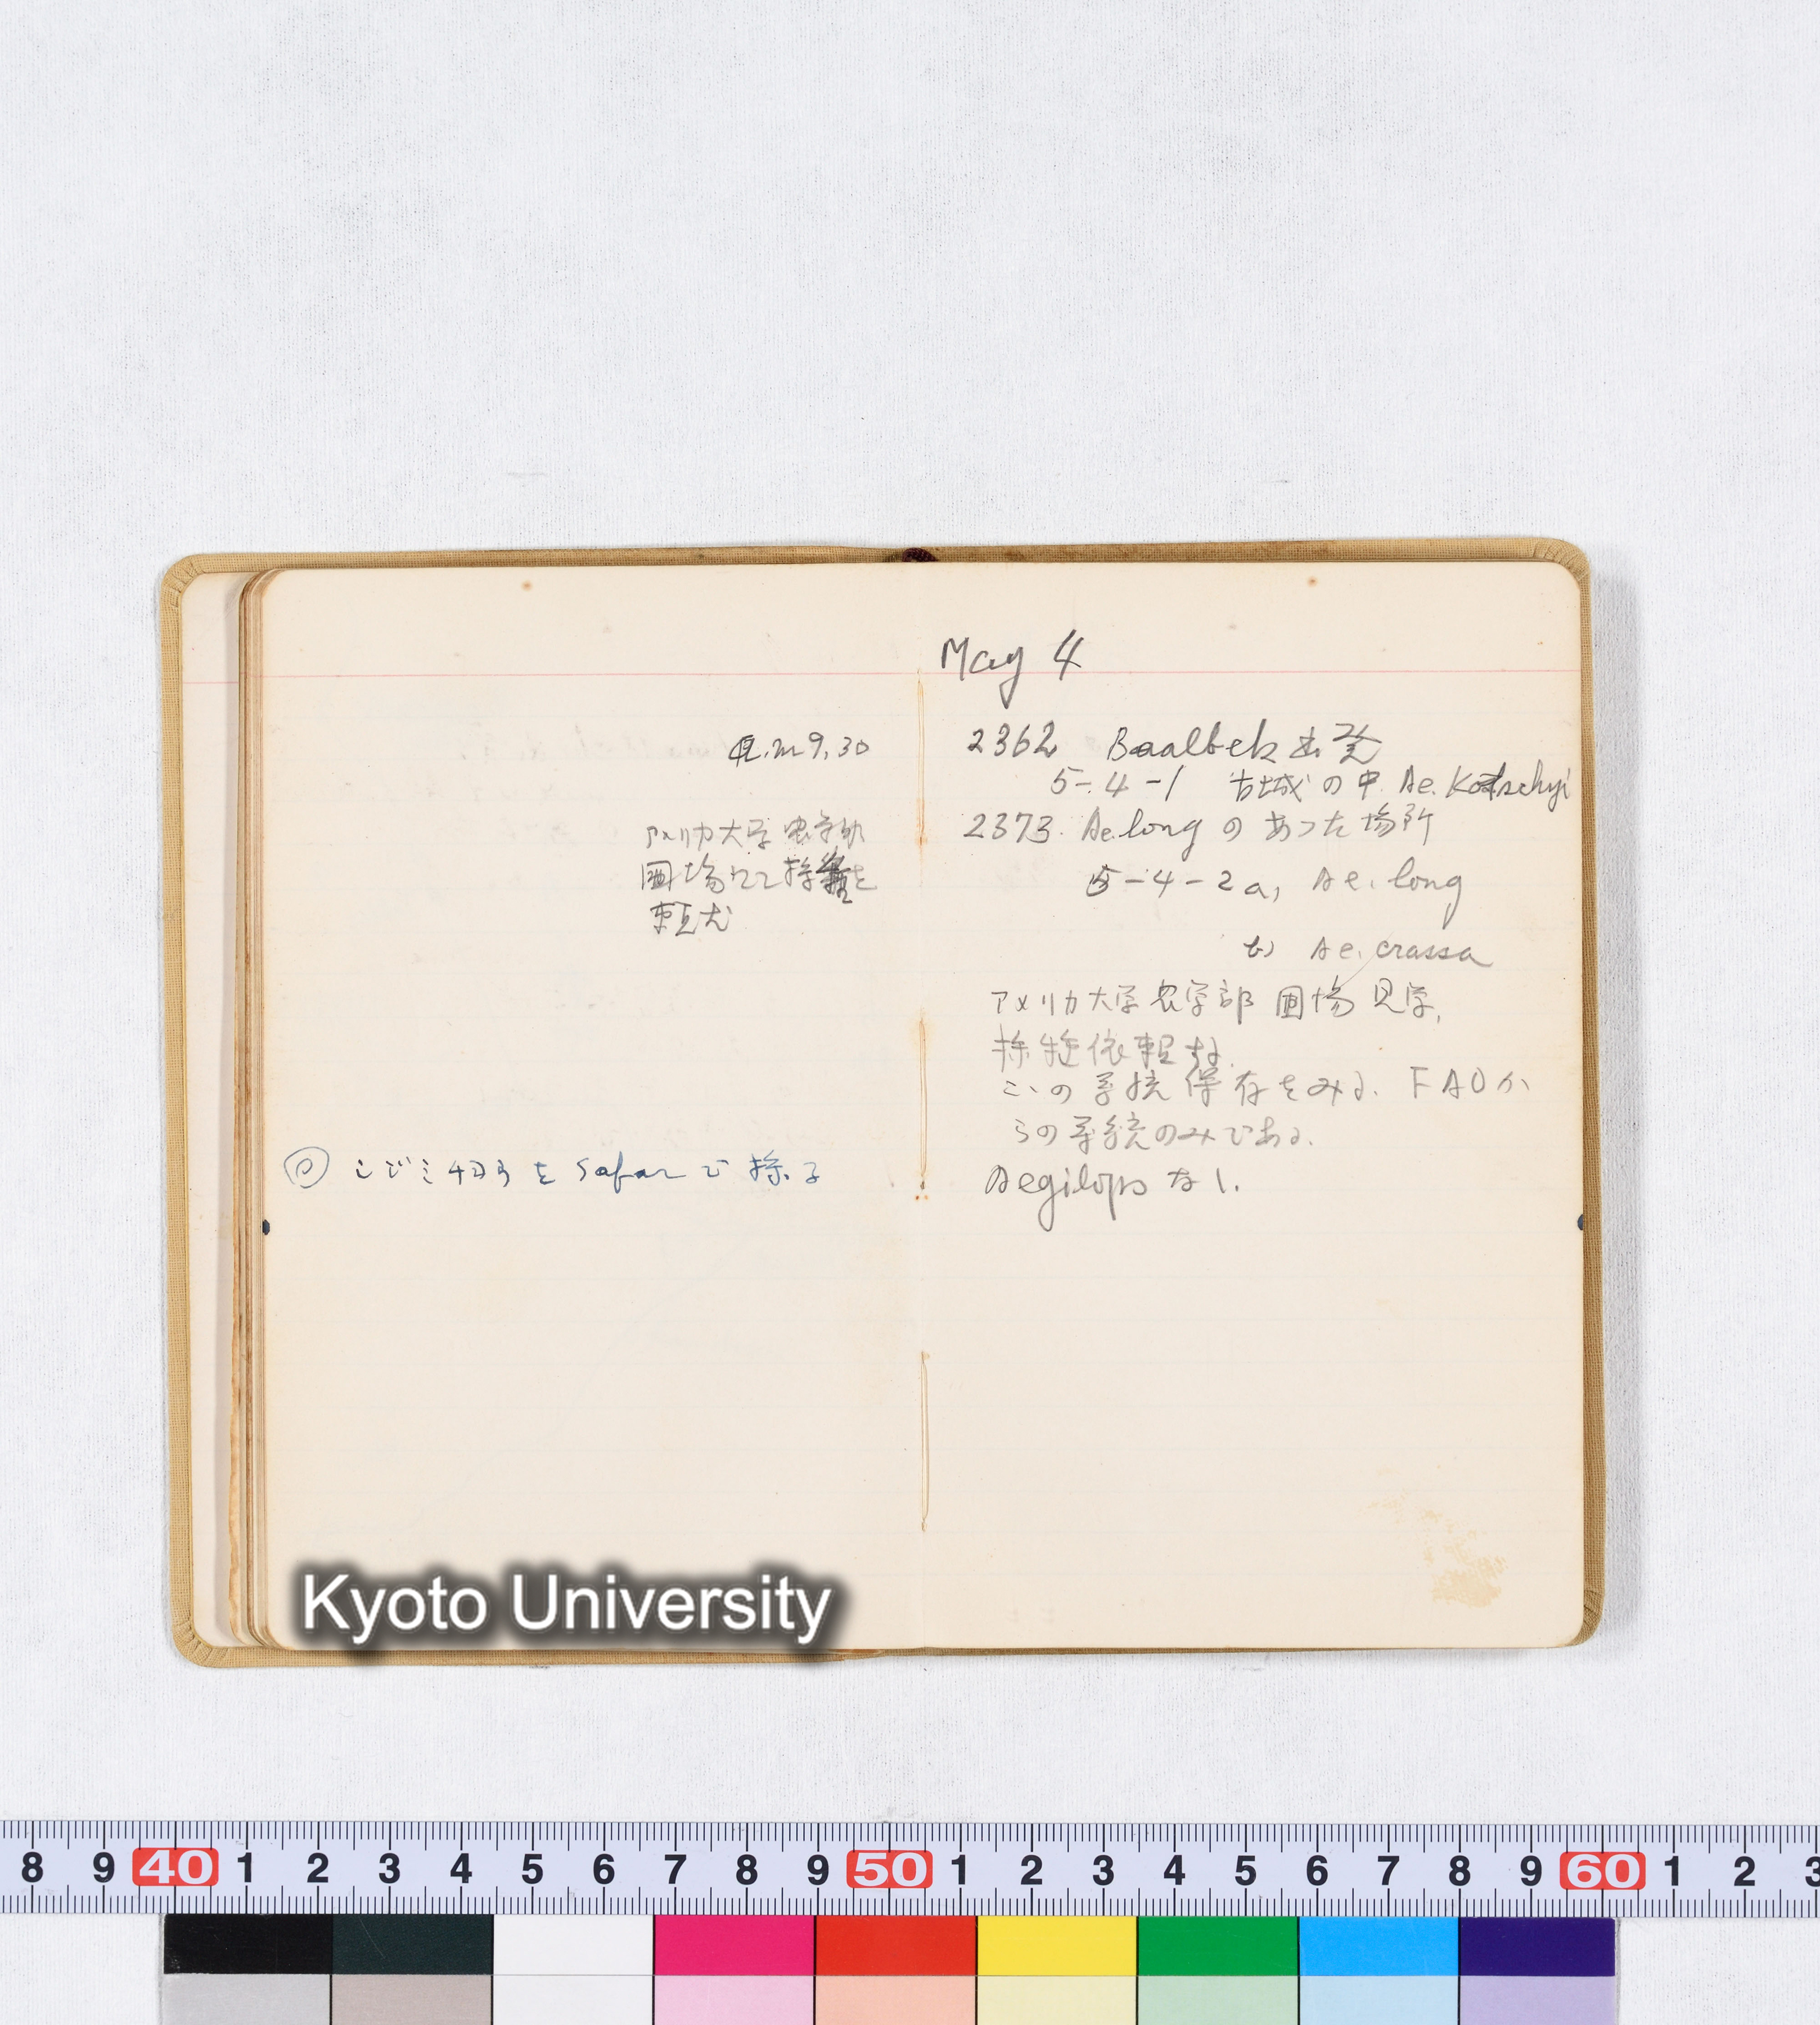 a.m 9.30
アメリカ大学 農学部
圃場にて採種を
頼む
をSafarで採る
May 4
2362 Baalbek出発
5-4-1 古城の中 Ae. Kotschyi
2373. Ae. long のあった場所
5-4-2 a, Ae. long
b) Ae. crassa
アメリカ大学 農学部 圃場 見学.
採種依頼する.
この系統保存をみる. FAOか
らの系統のみである.
Aegilops なし.
Kyoto University
8 9 40 1 2 3 4 5 6 7 8 9 50 1 2 3 4 5 6 7 8 9 60 1 2 3